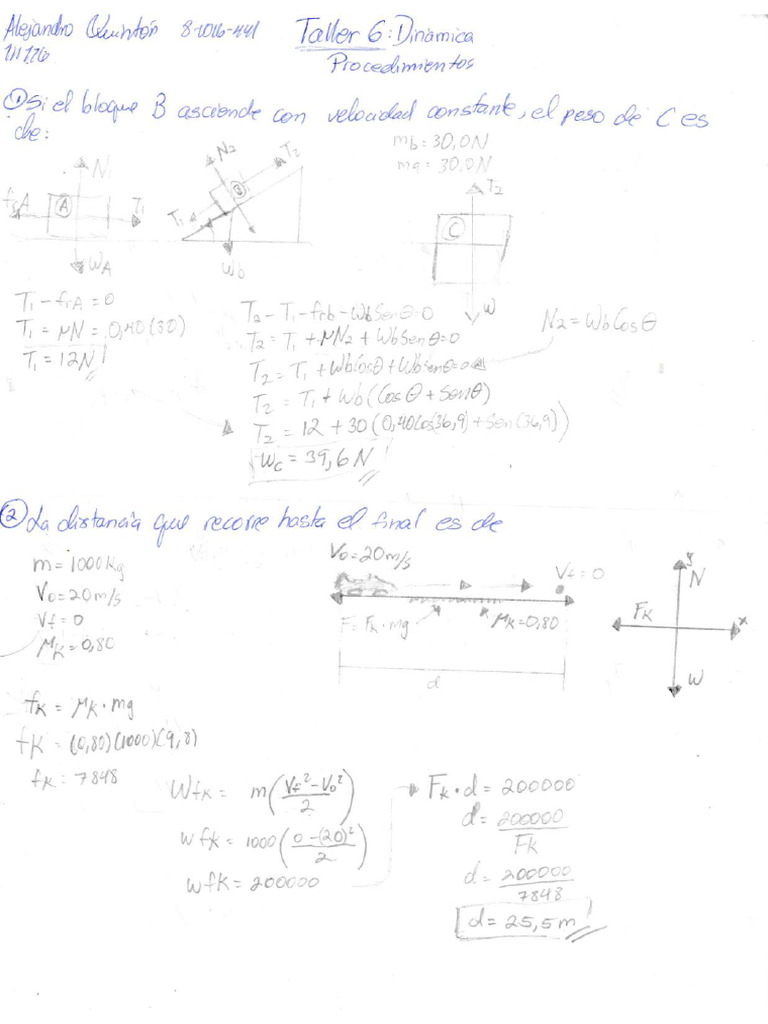 Alejandro Quintón 8-1016-441 Taller 6: Dinámica
1I1126 Procedimientos
① Si el bloque B asciende con velocidad constante, el peso de C es
de:
mb = 30,0N
ma = 30,0N
N N2 T2 T2
fsA A T1 T1 B C
WA Wb W
T1 - f1A = 0
T1 = μN = 0,40(30)
T1 = 12N
T2 - T1 - frb - WbSenθ = 0
T2 = T1 + μN2 + WbSenθ = 0
N2 = WbCosθ
T2 = T1 + WbCosθ + WbSenθ = 0
T2 = T1 + Wb(Cosθ + Senθ)
T2 = 12 + 30(0,40Cos(36,9) + Sen(36,9))
Wc = 39,6 N
② La distancia que recorre hasta el final es de
m = 1000kg
V0 = 20m/s
Vf = 0
μk = 0,80
V0 = 20m/s
Vf = 0
F = Fk · mg μk = 0,80
d
y
N
Fk x
W
fk = μk · mg
fk = (0,80)(1000)(9,8)
fk: 7848
Wfk = m(Vf² - V0² / 2)
Wfk = 1000(0 - (20)² / 2)
WfK = 200000
Fk · d = 200000
d = 200000 / Fk
d = 200000 / 7848
d = 25,5m